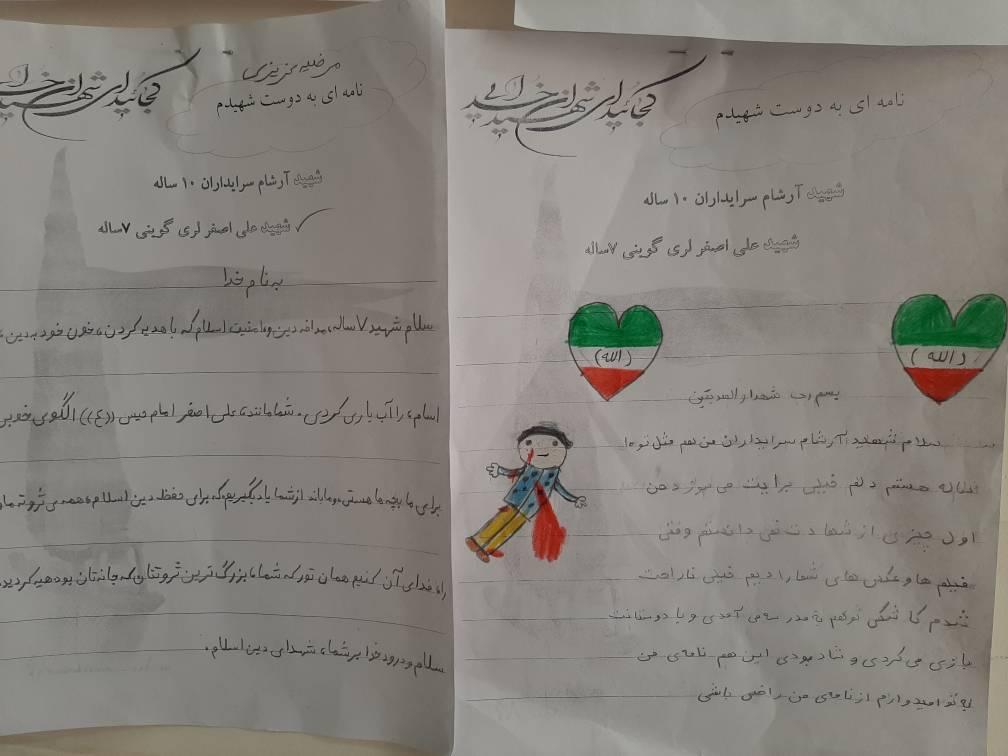 مرضیه عزیزی
کجائید ای شهیدان خدایی
نامه ای به دوست شهیدم
شهید آرشام سرایداران ۱۰ ساله
شهید علی اصغر لری گوینی ۷ساله ✓
به نام خدا
سلام شهید ۷ ساله، مدافع دین و امنیت اسلام که با هدیه کردن، خون خود به دین،
اسلام، را آب یاری کردی. شما مانند، علی اصغر امام حسین ((ع)) الگوی خوبی
برای ما بچه ها هستی، و ما باید از شما یاد بگیریم که برای حفظ دین اسلام، همه ی ثروته ما و
راه، فدای آن کنیم همان تور که شما، بزرگ ترین ثروتتان که جانه تان بود هدیه کردید.
سلام و درود خدا بر شما، شهدای دین اسلام.
کجائید ای شهیدان خدایی
نامه ای به دوست شهیدم
شهید آرشام سرایداران ۱۰ ساله
شهید علی اصغر لری گوینی ۷ساله
(الله)
(الله)
بسم رب شهدا و الصدیقین
سلام شهید آرشام سرایداران من هم مثل تو ۱۰
ساله هستم دلم خیلی برایت می سوزد من
اول چیزی از شهادت نمی دانستم وقتی
فیلم ها و عکس های شما را دیدم خیلی ناراحت
شدم کاشکی تو هم به مدرسه می آمدی و با دوستانت
بازی می کردی و شاد بودی این هم نامه ی من
به تو امیدوارم از نامه ی من راضی باشی